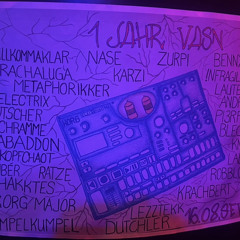 1 JAHR VASN
LLKOMMAKLAR NASE ZURPI BENN
RACHALUGA KARZI INFRAGIL
METAPHORIKKER LAUTE
ELECTRIX AND
UTSCHER PIGRE
CHRAMME BLE
ABADDON
KOPFCHAOT
ÜBER RATZE LA
HAKKTES ROBBL
KORG MAJOR KRACHBERT
LEZZTEKK 16.08.
MPELKUMPEL DUTCHLER